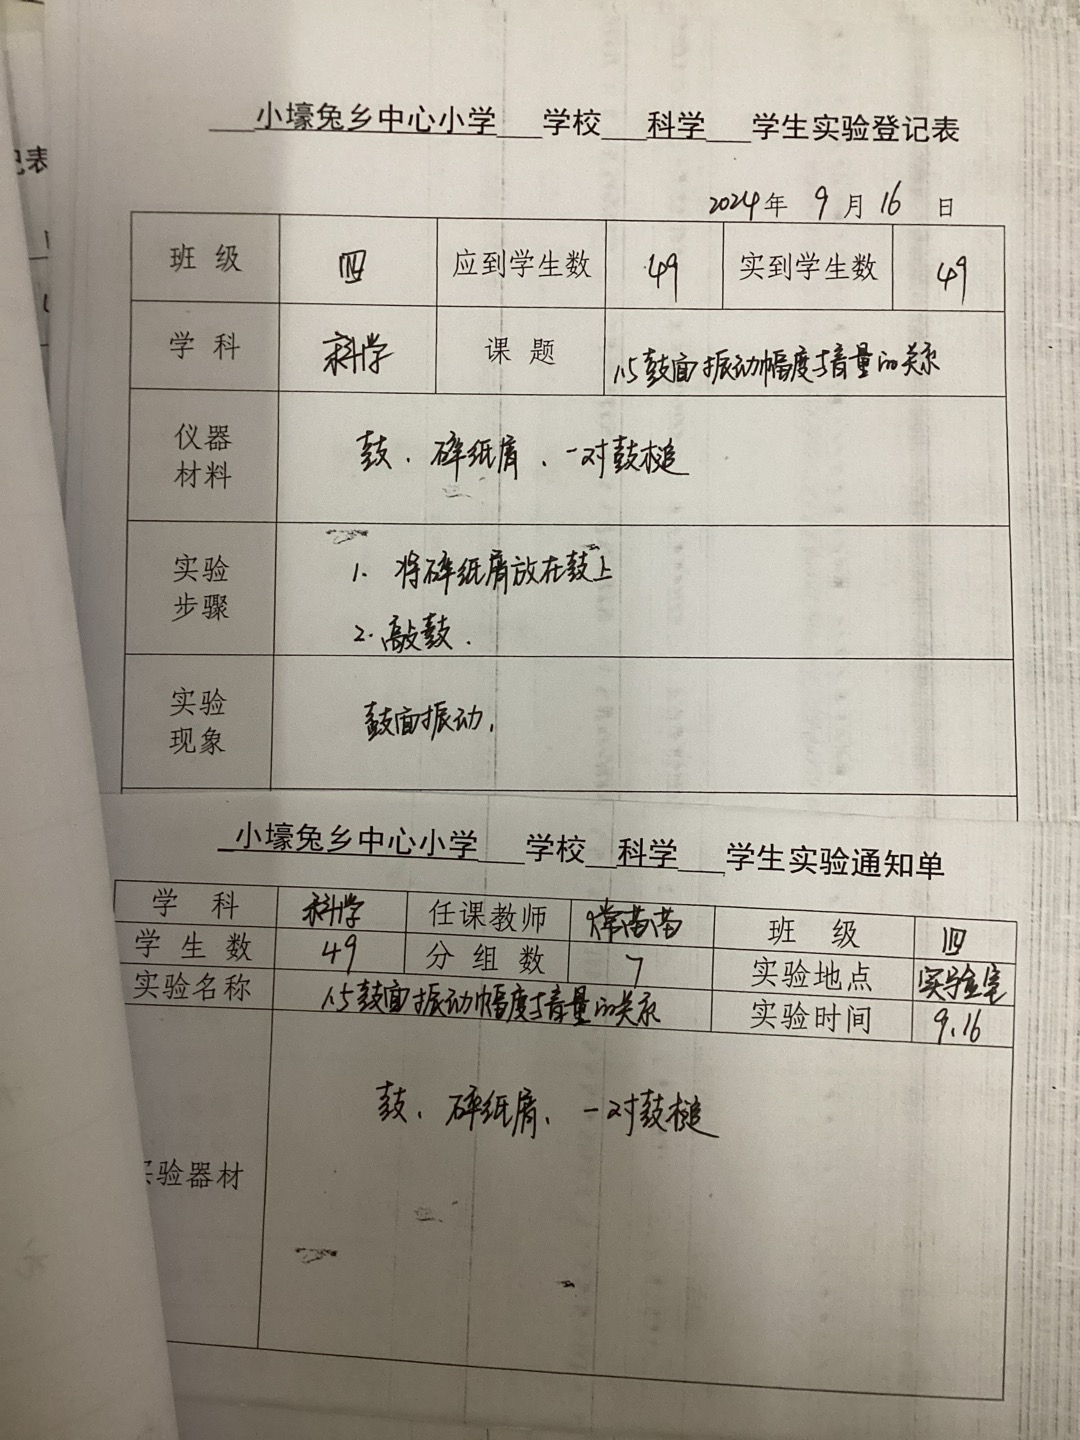 记表
小壕兔乡中心小学 学校 科学 学生实验登记表
2024年 9月16日
班级 四 应到学生数 49 实到学生数 49
学科 科学 课题 1.5鼓面振动幅度与音量的关系
仪器材料 鼓、碎纸屑、一对鼓槌
实验步骤 1. 将碎纸屑放在鼓上
2. 敲鼓.
实验现象 鼓面振动,
小壕兔乡中心小学 学校 科学 学生实验通知单
学科 科学 任课教师 苗苗 班级 四
学生数 49 分组数 7 实验地点 实验室
实验名称 1.5鼓面振动幅度与音量的关系 实验时间 9.16
验器材 鼓、碎纸屑、一对鼓槌